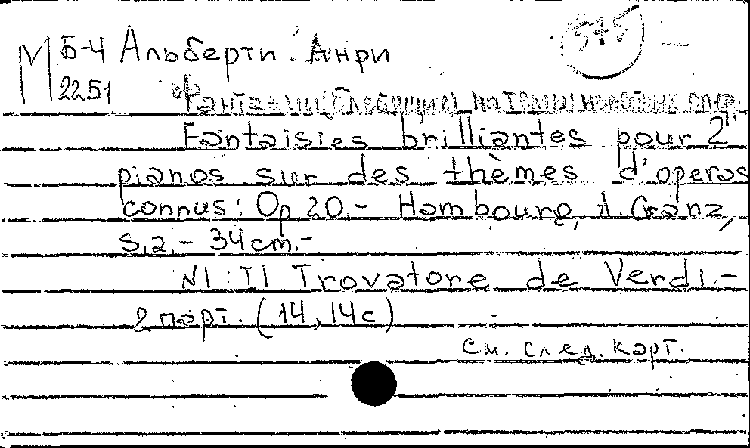 М Б-4 Альберти Анри 545
2251
Fantaisies brilliantes pour 2
pianos sur des thèmes d'operas
connus: Op 20.- Hambourg, A. Cranz,
s.a.- 34 cm.-
N1: Il Trovatore de Verdi.-
2 парт. (14, 14с)
см. след. карт.